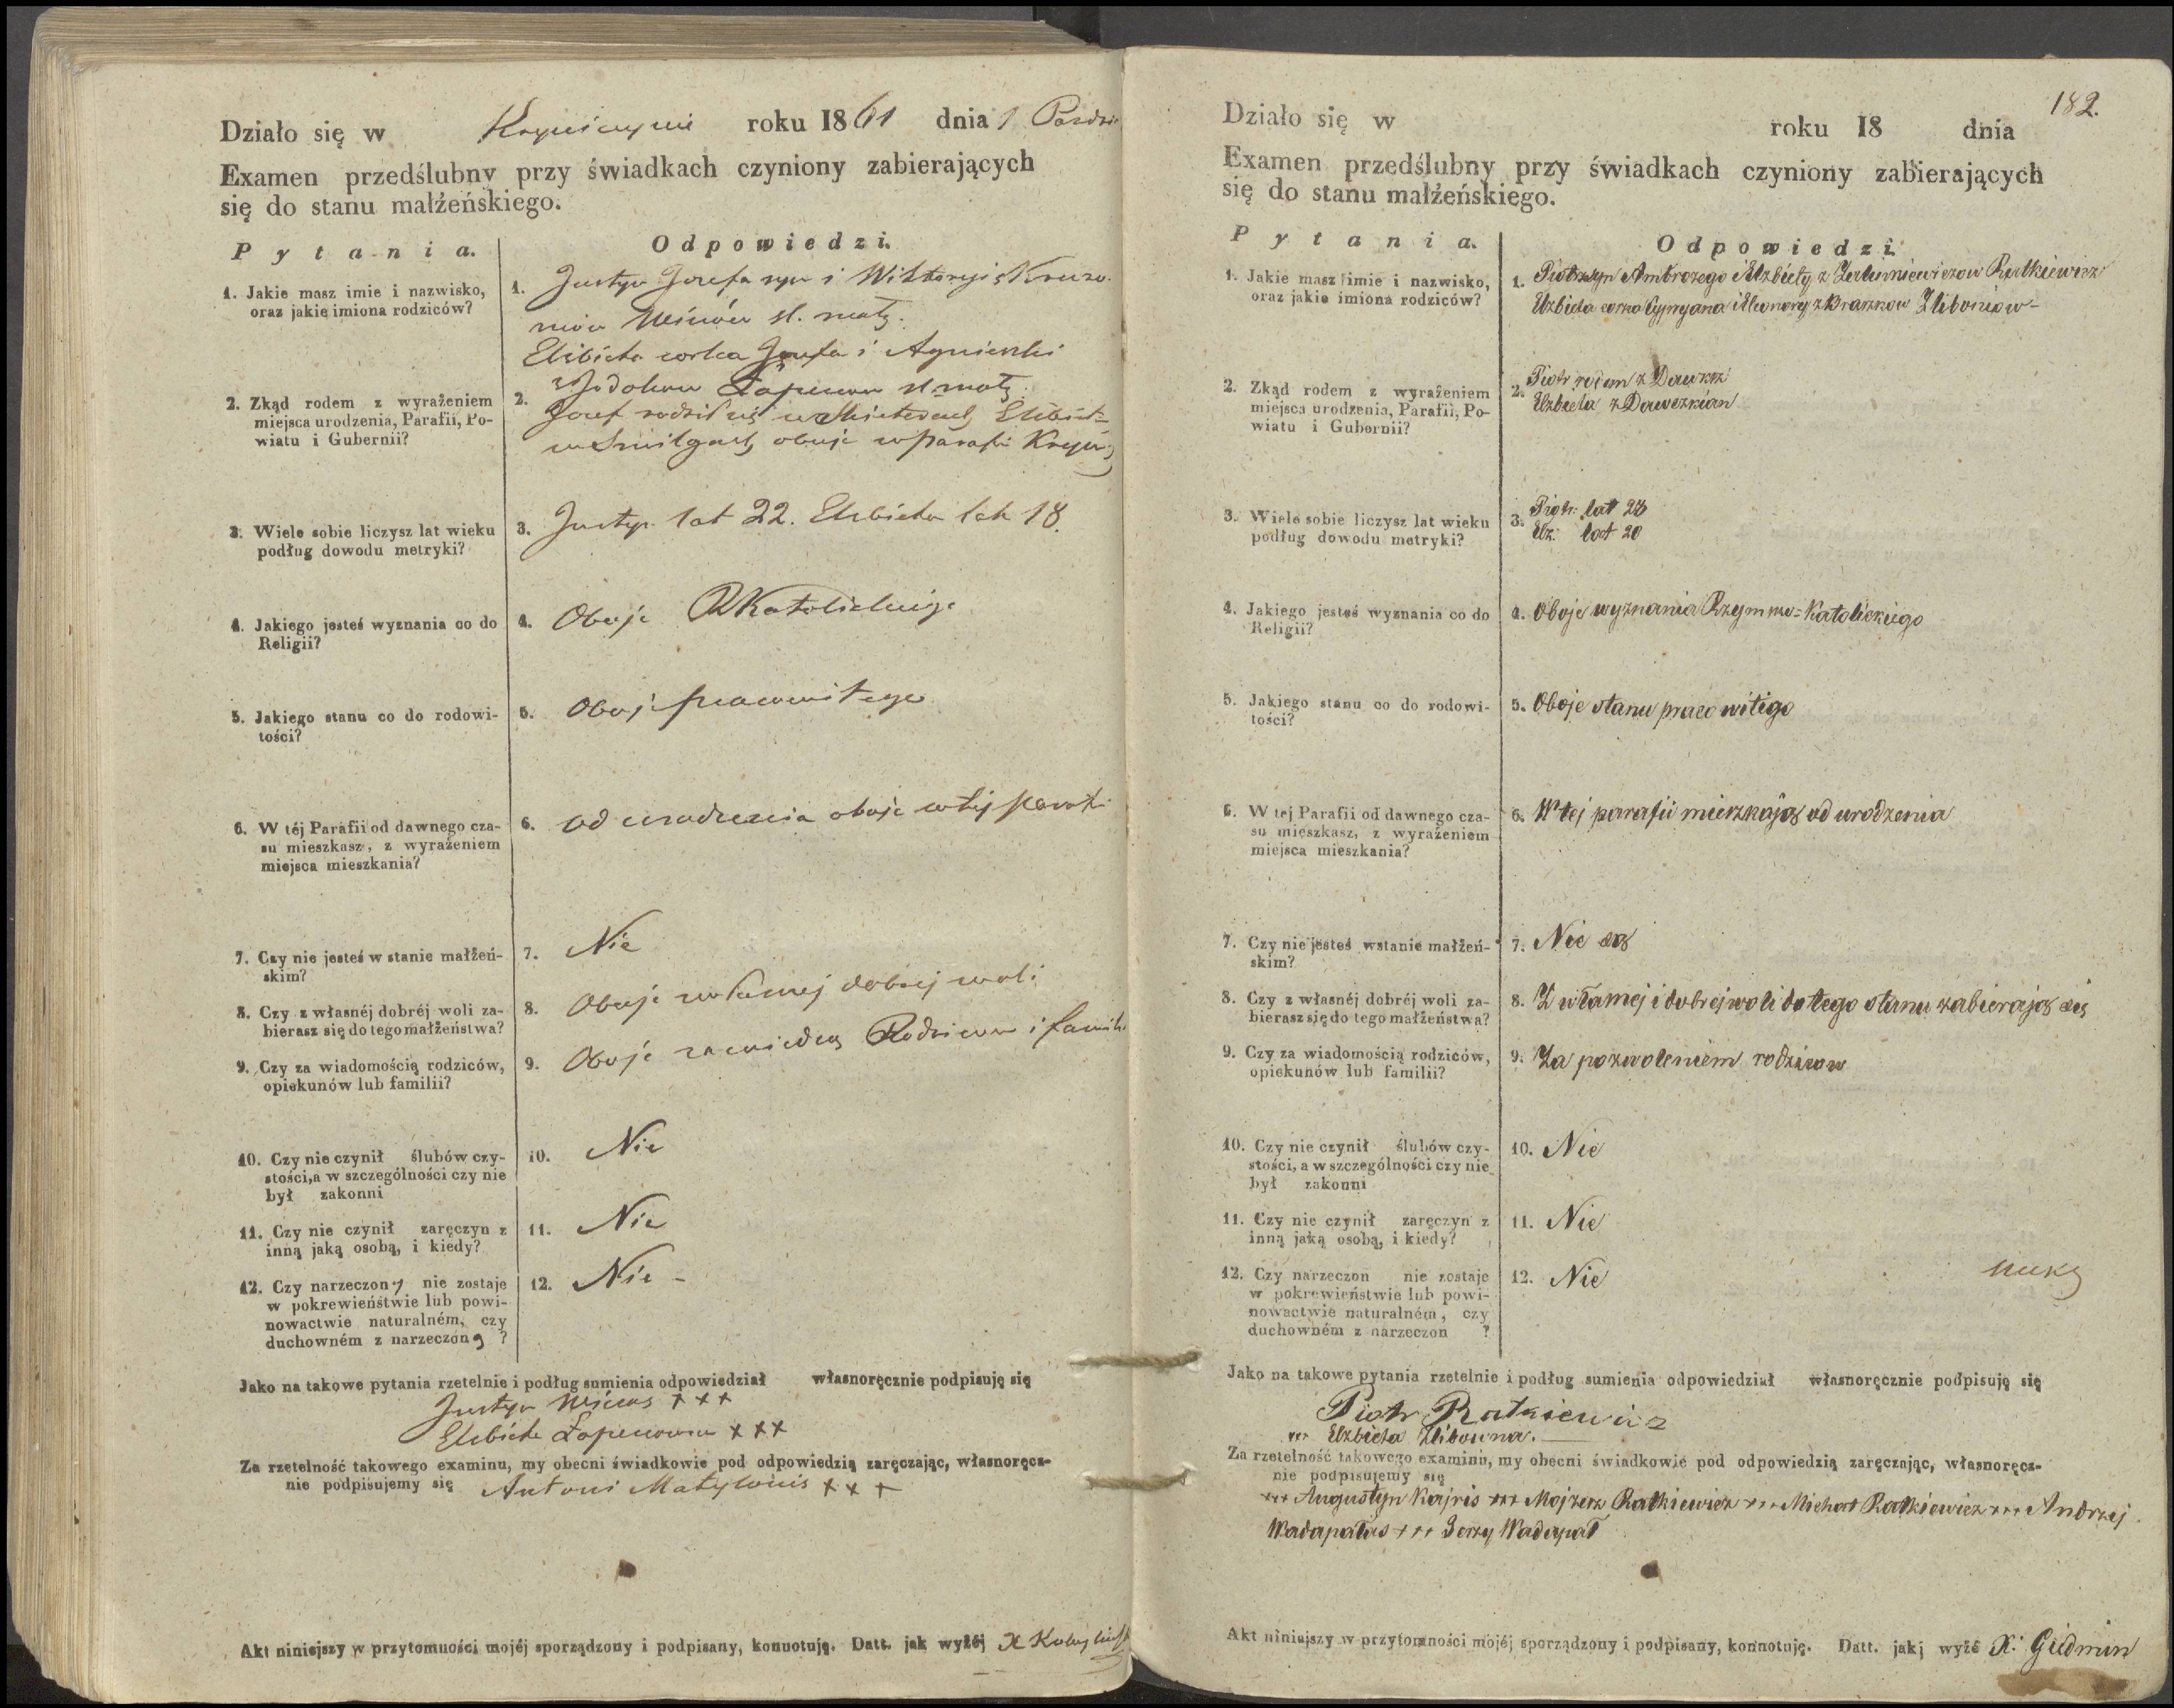 Działo się w roku 1861 dnia 1
Examen przedślubny przy świadkach czyniony zabierających
się do stanu małżeńskiego.
Pytania.
Odpowiedzi.
1. Jakie masz imie i nazwisko,
oraz jakie imiona rodziców?
1. Justyn Jozefa syn i Wiktoryi z
sl. małż.
Elżbieta corka Jozefa i Agnieszki
małż.
2. Zkąd rodem z wyrażeniem
miejsca urodzenia, Parafii, Po-
wiatu i Gubernii?
2. Jozef rodził się w
oboje w parafii
3. Wiele sobie liczysz lat wieku
podług dowodu metryki?
3. Justyn lat 22. Elżbieta lat 18.
4. Jakiego jesteś wyznania co do
Religii?
4. Oboje RKatolickiego
5. Jakiego stanu co do rodowi-
tości?
5. Oboje pracowitego
6. W téj Parafii od dawnego cza-
su mieszkasz, z wyrażeniem
miejsca mieszkania?
6. od urodzenia oboje w tej parafii
7. Czy nie jesteś w stanie małżeń-
skim?
7. Nie
8. Czy z własnéj dobréj woli za-
bierasz się do tego małżeństwa?
8. Oboje z własnej dobrej woli
9. Czy za wiadomością rodziców,
opiekunów lub familii?
9. Oboje za wiedzą Rodziców i famili
10. Czy nie czynił ślubów czy-
stości, a w szczególności czy nie
był zakonni
10. Nie
11. Czy nie czynił zaręczyn z
inną jaką osobą, i kiedy?
11. Nie
12. Czy narzeczony nie zostaje
w pokrewieństwie lub powi-
nowactwie naturalném, czy
duchowném z narzeczoną ?
12. Nie -
Jako na takowe pytania rzetelnie i podług sumienia odpowiedział własnoręcznie podpisuję się
Justyn +++
Elżbieta +++
Za rzetelność takowego examinu, my obecni świadkowie pod odpowiedzią zaręczając, własnoręcz-
nie podpisujemy się Antoni +++
Akt niniejszy w przytomności mojéj sporządzony i podpisany, konnotuję. Datt. jak wyżéj X
182.
Działo się w roku 18 dnia
Examen przedślubny przy świadkach czyniony zabierających
się do stanu małżeńskiego.
Pytania.
Odpowiedzi.
1. Jakie masz imie i nazwisko,
oraz jakie imiona rodziców?
1. Piotr syn Ambrozego i Elzbiety z Ratkiewicz
Elzbieta corka Cypryana i Eleonory z
2. Zkąd rodem z wyrażeniem
miejsca urodzenia, Parafii, Po-
wiatu i Gubernii?
2. Piotr rodem z
Elzbieta z
3. Wiele sobie liczysz lat wieku
podług dowodu metryki?
3. Piotr: lat
Elz: lat 20
4. Jakiego jesteś wyznania co do
Religii?
4. Oboje wyznania Rzymsko=Katolickiego
5. Jakiego stanu co do rodowi-
tości?
5. Oboje stanu pracowitego
6. W tej Parafii od dawnego cza-
su mieszkasz, z wyrażeniem
miejsca mieszkania?
6. W tej parafii mieszkają od urodzenia
7. Czy nie jesteś wstanie małżeń-
skim?
7. Nie są
8. Czy z własnéj dobréj woli za-
bierasz się do tego małżeństwa?
8. Z własnej i dobrej woli do tego stanu zabierają się
9. Czy za wiadomością rodziców,
opiekunów lub familii?
9. Za pozwoleniem rodziców
10. Czy nie czynił ślubów czy-
stości, a w szczególności czy nie
był zakonni
10. Nie
11. Czy nie czynił zaręczyn z
inną jaką osobą, i kiedy?
11. Nie
12. Czy narzeczon nie zostaje
w pokrewieństwie lub powi-
nowactwie naturalném, czy
duchowném z narzeczon ?
12. Nie
Jako na takowe pytania rzetelnie i podług sumienia odpowiedział własnoręcznie podpisuję się
Piotr Ratkiewicz
+++ Elzbieta
Za rzetelność takowego examinu, my obecni świadkowie pod odpowiedzią zaręczając, własnoręcz-
nie podpisujemy się
+++ Augustyn Kajris +++ Mojzesz Ratkiewicz +++ Michał Ratkiewicz +++ Andrzej
Wadapałas +++ Jerzy Wadapał
Akt niniejszy w przytomności mojéj sporządzony i podpisany, konnotuję. Datt. jakj wyżé X. Giedmin